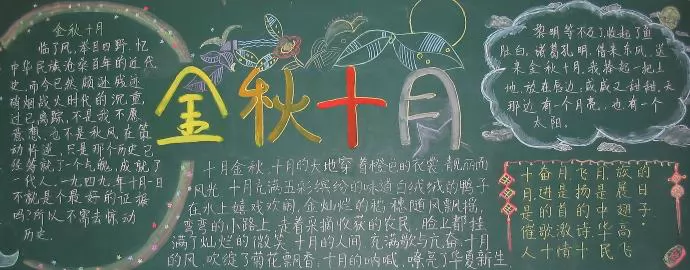 金秋十月
临了风，举目四野，忆
中华民族沧桑百年的近代
史，而今已然颇逝残迹
硝烟战火时代的沉重，
过已离踪，不是我不屑
意想，也不是秋风在策
动忏逆，只是那个历史已
经筹就了一个气魄，成就了
一代人。一九四九年十月一日
不就是个最好的证据
吗？所以不需去惊动
历史。
金秋十月
十月金秋，十月的大地穿着橙色的衣裳，靓丽而
风光，十月充满五彩缤纷的味道，白绒绒的鸭子
在水上嬉戏欢闹，金灿烂的稻穗随风飘摇，
弯弯的小路上，走着采摘收获的农民，脸上都挂
满了灿烂的微笑，十月的人间，充满歌与亢奋；十月
的风，吹绽了菊花飘香；十月的呐喊，嘹亮了华夏新生
黎明等不及，收起了鱼
肚白，诸葛孔明，借来东风，送
来金秋十月。我捧起一把土
地，放在唇边：咸咸又甜甜，天
那边有一个月亮，也有一个
太阳。
十奋月飞月放的
月进是扬是晨日
是的首的中翅子
催歌激诗华高
人十情十民飞